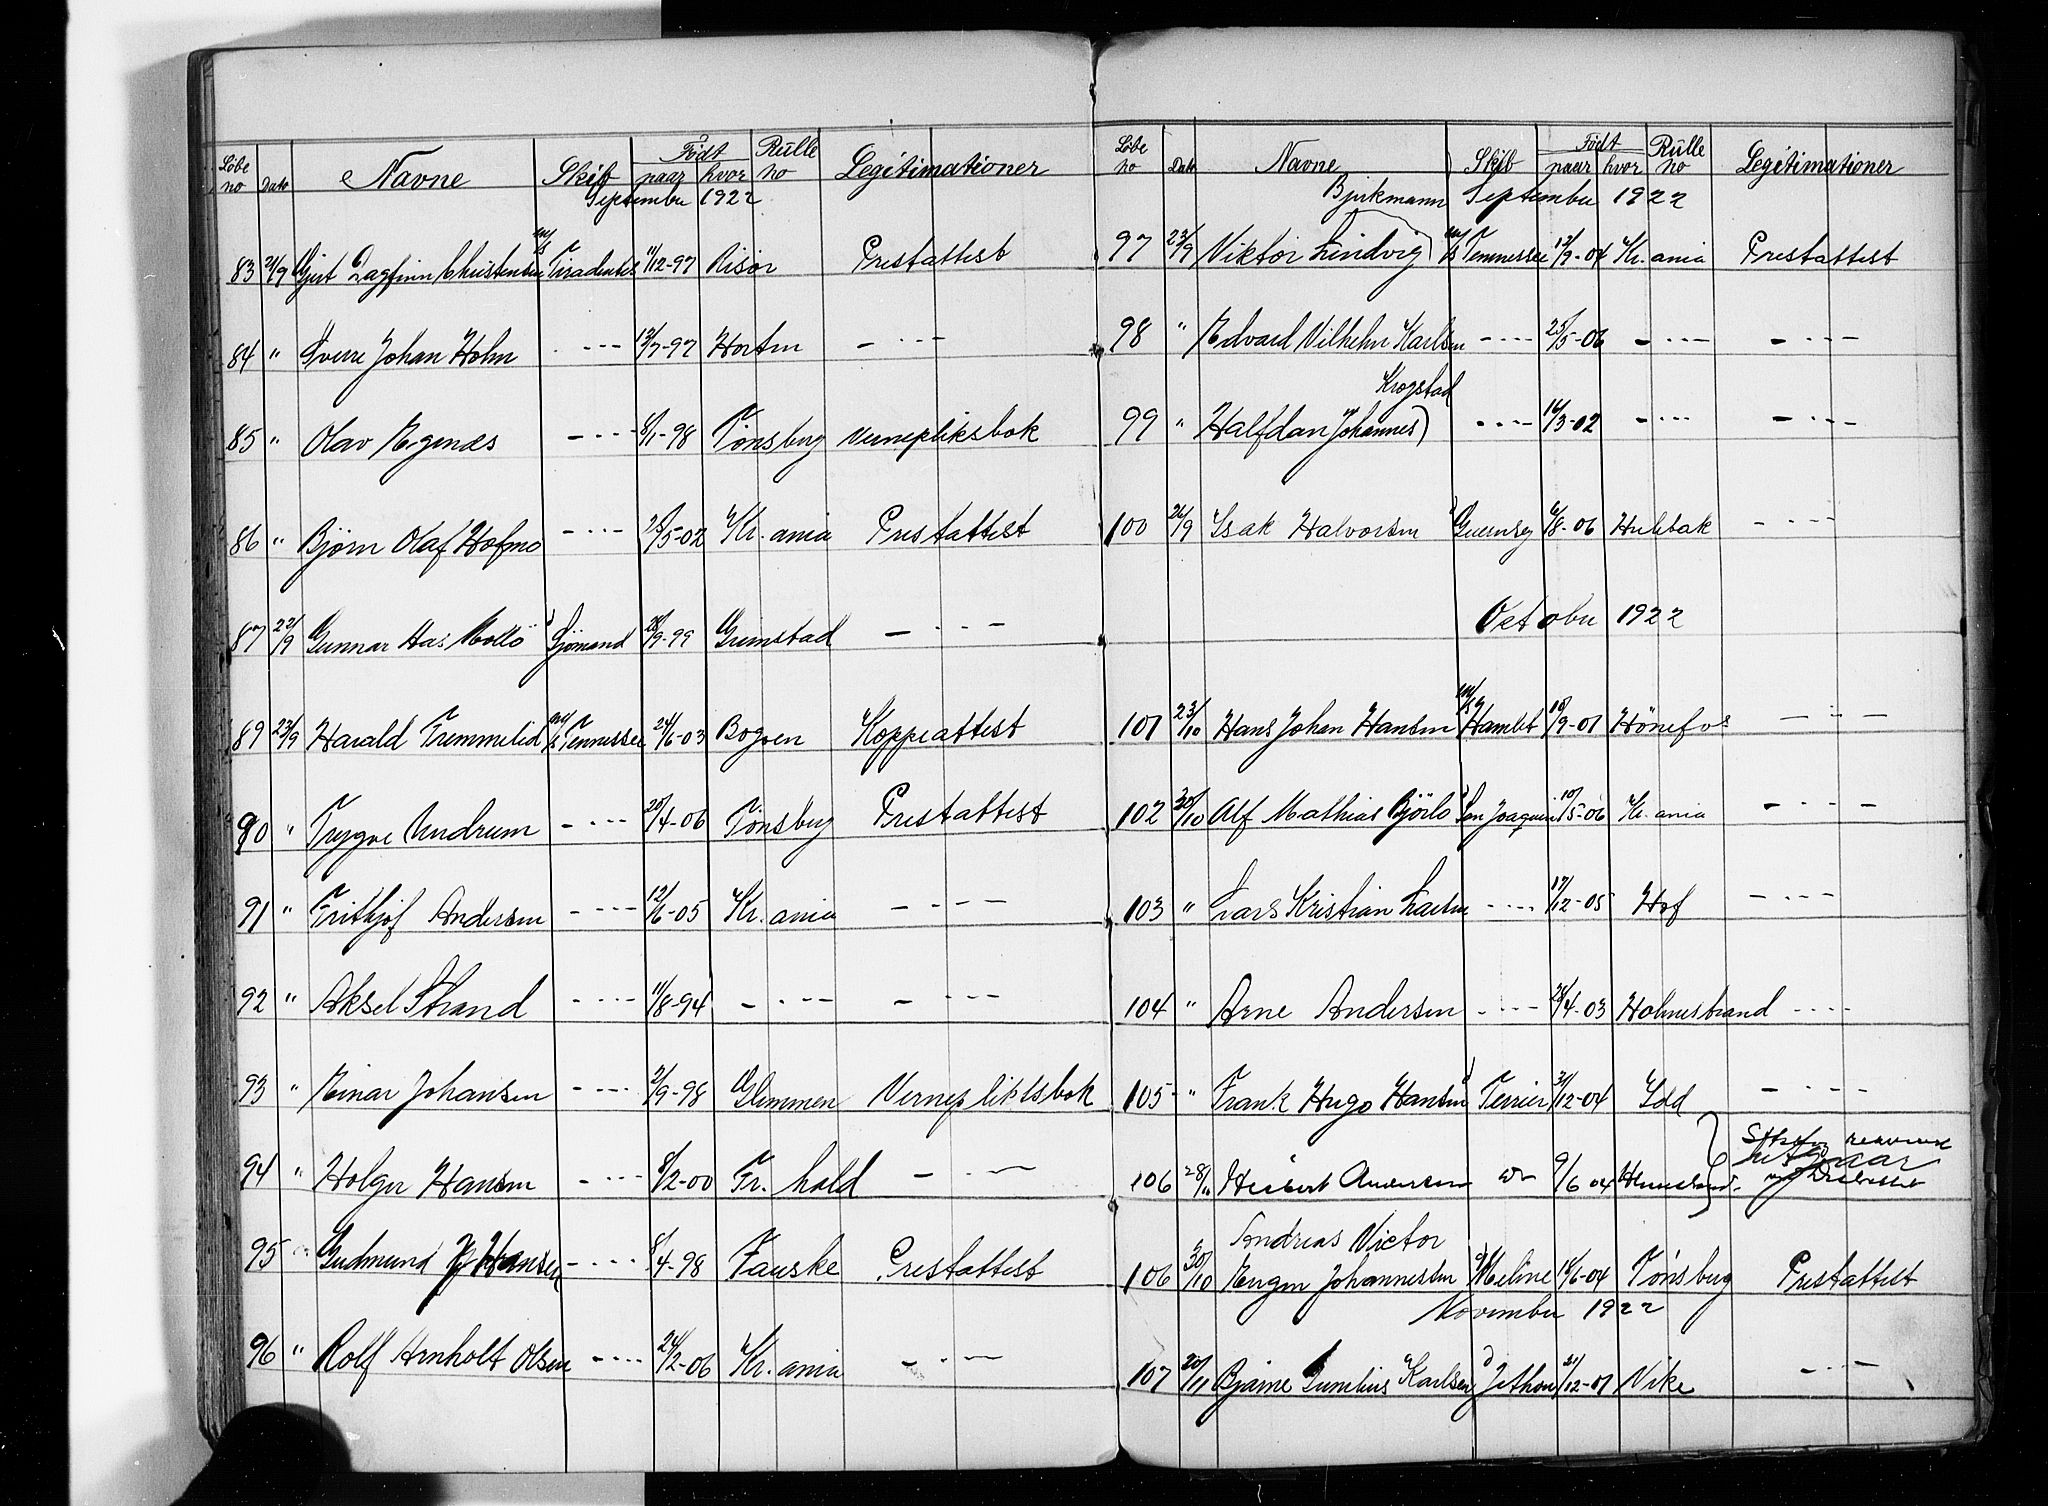 Løbe no Dato Navne Skib Født naar hvor Rulle no Legitimationer
September 1922
83 21/9 Gjert Dagfinn Christensen m/s Tiradentes 11/12-97 Risør Prestattest
84 " Sverre Johan Holm - - - - 13/7-97 Horten - - - -
85 " Olav Regnæs - - - - 8/1-98 Tønsberg Vernepliksbok
86 " Bjørn Olaf Hofmo - - - - 5-02 Kr.ania Prestattest
87 22/9 Gunnar Has Mollö Sjömand 28/9-99 Grimstad - - - -
89 23/9 Harald Tremmelid m/s Tennessee 24/6-03 Bogen Koppeattest
90 " Trygve Undrum - - - - 20/4-06 Tønsberg Prestattest
91 " Frithjof Andersen - - - - 12/6-05 Kr.ania - - - -
92 " Aksel Strand - - - - 11/8-94 - - - - - - - -
93 " Einar Johansen - - - - 2/9-98 Glemmen Vernepliktsbok
94 " Holger Hansen - - - - 8/2-00 Fr.hald - - - -
95 " Gudmund Hansen - - - - 8/4-98 Fauske Prestattest
96 " Rolf Arnholt Olsen - - - - 24/2-06 Kr.ania - - - -
Løbe no Dato Navne Skib Født naar hvor Rulle no Legitimationer
Bjerkmann September 1922
97 23/9 Viktor Lindvig) m/s Tennessee 12/9-04 Kr.ania Prestattest
98 " Edvard Vilhelm Karlsen - - - - 25/5-06 - - - - - - - -
Krogstad
99 " Halfdan Johannes) - - - - 16/3-02 - - - - - - - -
100 26/9 Isak Halvorsen Guernsey 6/8-06 Hulebak - - - -
October 1922
101 23/10 Hans Johan Hansen m/s Hamlet 18/9-01 Hönefos - - - -
102 30/10 Alf Mathias Björlo San Joaquin 10/5-06 Kr.ania - - - -
103 " Lars Kristian Larsen - - - - 17/12-05 Hof - - - -
104 " Arne Andersen - - - - 28/4-03 Holmestrand - - - -
105 " Frank Hugo Hansen Terrier 31/12-04 Idd - - - -
106 28/10 Herbert Andersen 9/6 04
Andreas Victor
106 30/10 Eugen Johannessen Meline 18/6-04 Tønsberg Prestattest
November 1922
107 20/11 Bjarne Gunelius Karlsen Jethou 21/12-01 Vike - - - -